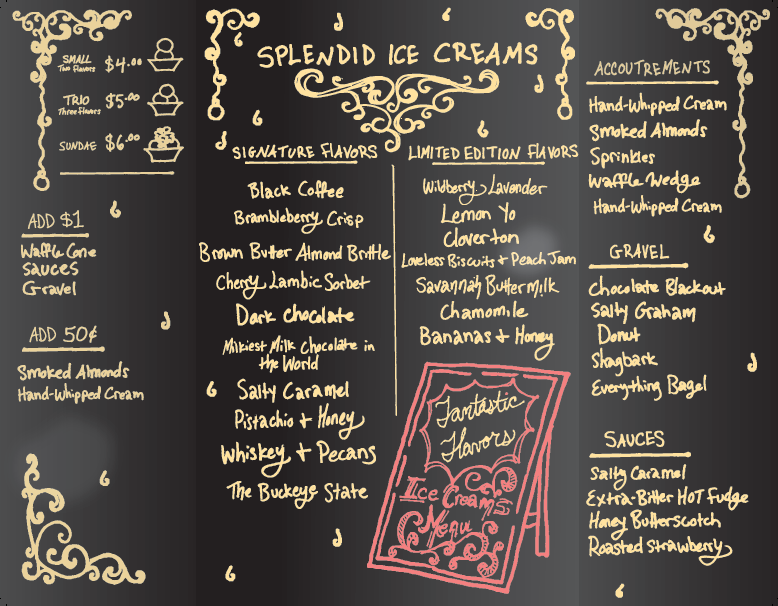 SPLENDID ICE CREAMS
SMALL
Two Flavors
$4.00
TRIO
Three Flavors
$5.00
SUNDAE
$6.00
ADD $1
Waffle Cone
SAUCES
Gravel
ADD 50¢
Smoked Almonds
Hand-Whipped Cream
SIGNATURE FLAVORS
Black Coffee
Brambleberry Crisp
Brown Butter Almond Brittle
Cherry Lambic Sorbet
Dark Chocolate
Milkiest Milk Chocolate in
the World
Salty Caramel
Pistachio + Honey
Whiskey + Pecans
The Buckeye State
LIMITED EDITION FLAVORS
Wildberry Lavender
Lemon Yo
Cloverton
Loveless Biscuits + Peach Jam
Savannah Buttermilk
Chamomile
Bananas + Honey
Fantastic
Flavors
Ice Cream's
Menu
ACCOUTREMENTS
Hand-Whipped Cream
Smoked Almonds
Sprinkles
Waffle Wedge
Hand-Whipped Cream
GRAVEL
Chocolate Blackout
Salty Graham
Donut
Shagbark
Everything Bagel
SAUCES
Salty Caramel
Extra-Bitter HOT Fudge
Honey Butterscotch
Roasted Strawberry